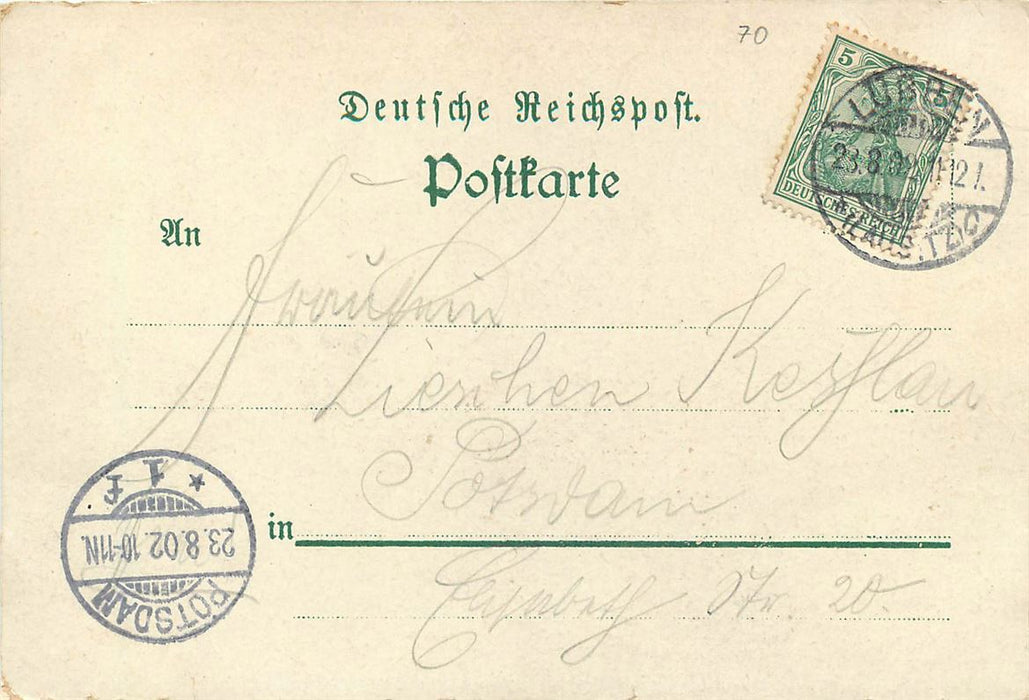 70
Deutsche Reichspost.
Postkarte
5
DEUTSCHES REICH
LÜBBEN
23.8.02. 11-12 V.
(LAUSITZ) C
An
Fräulein
Lieschen
Potsdam
in
Str. 20.
POTSDAM
23.8.02. 10-11N.
* 1 f